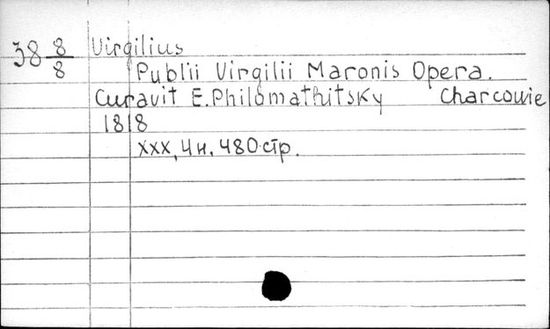 38 8/8 Virgilius
Publii Virgilii Maronis Opera.
Curavit E. Philomathitsky Charcowie
1818
XXX, 4 н. 480 стр.